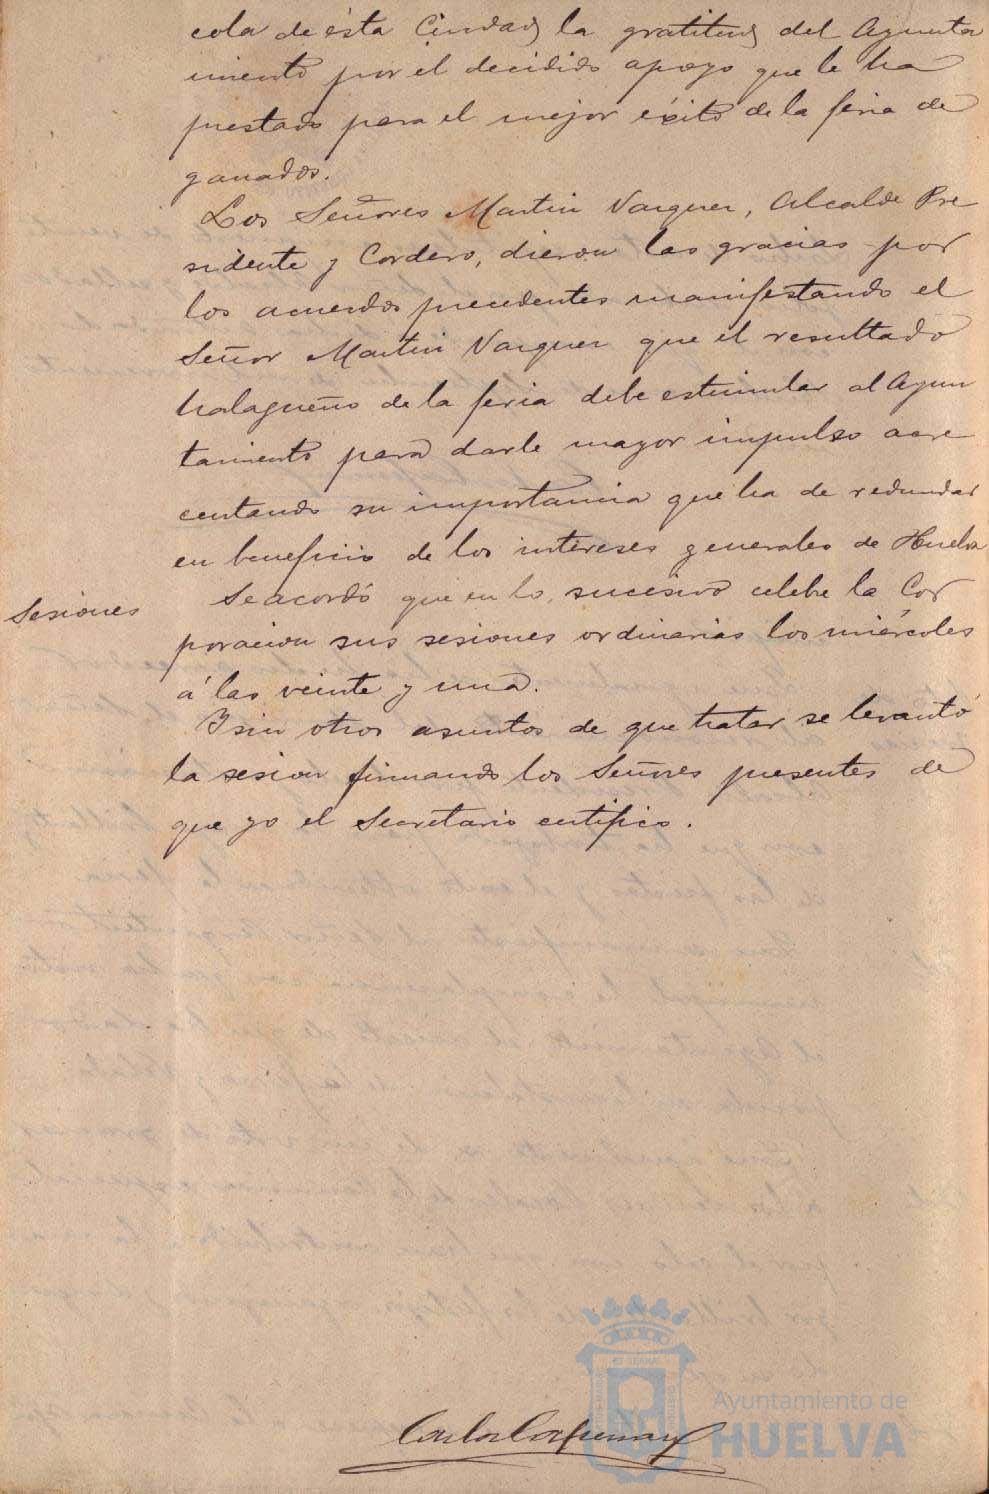 cola de ésta Ciudad la gratitud del Ayunta
miento por el decidido apoyo que le ha
prestado para el mejor éxito de la feria de
ganados.
Los Señores Martin Vazquez, Alcalde Pre
sidente y Cordero, dieron las gracias por
los acuerdos precedentes manifestando el
Señor Martin Vazquez que el resultado
halagueño de la feria debe estimular al Ayun
tamiento para darle mayor impulso acre
centando su importancia que ha de redundar
en beneficio de los intereses generales de Huelva
Sesiones
Se acordó que en lo sucesivo celebre la Cor
poracion sus sesiones ordinarias los miércoles
á las veinte y una.
Y sin otros asuntos de que tratar se levantó
la sesion firmando los Señores presentes de
que yo el Secretario certifico.
Ayuntamiento de
HUELVA
Carlos